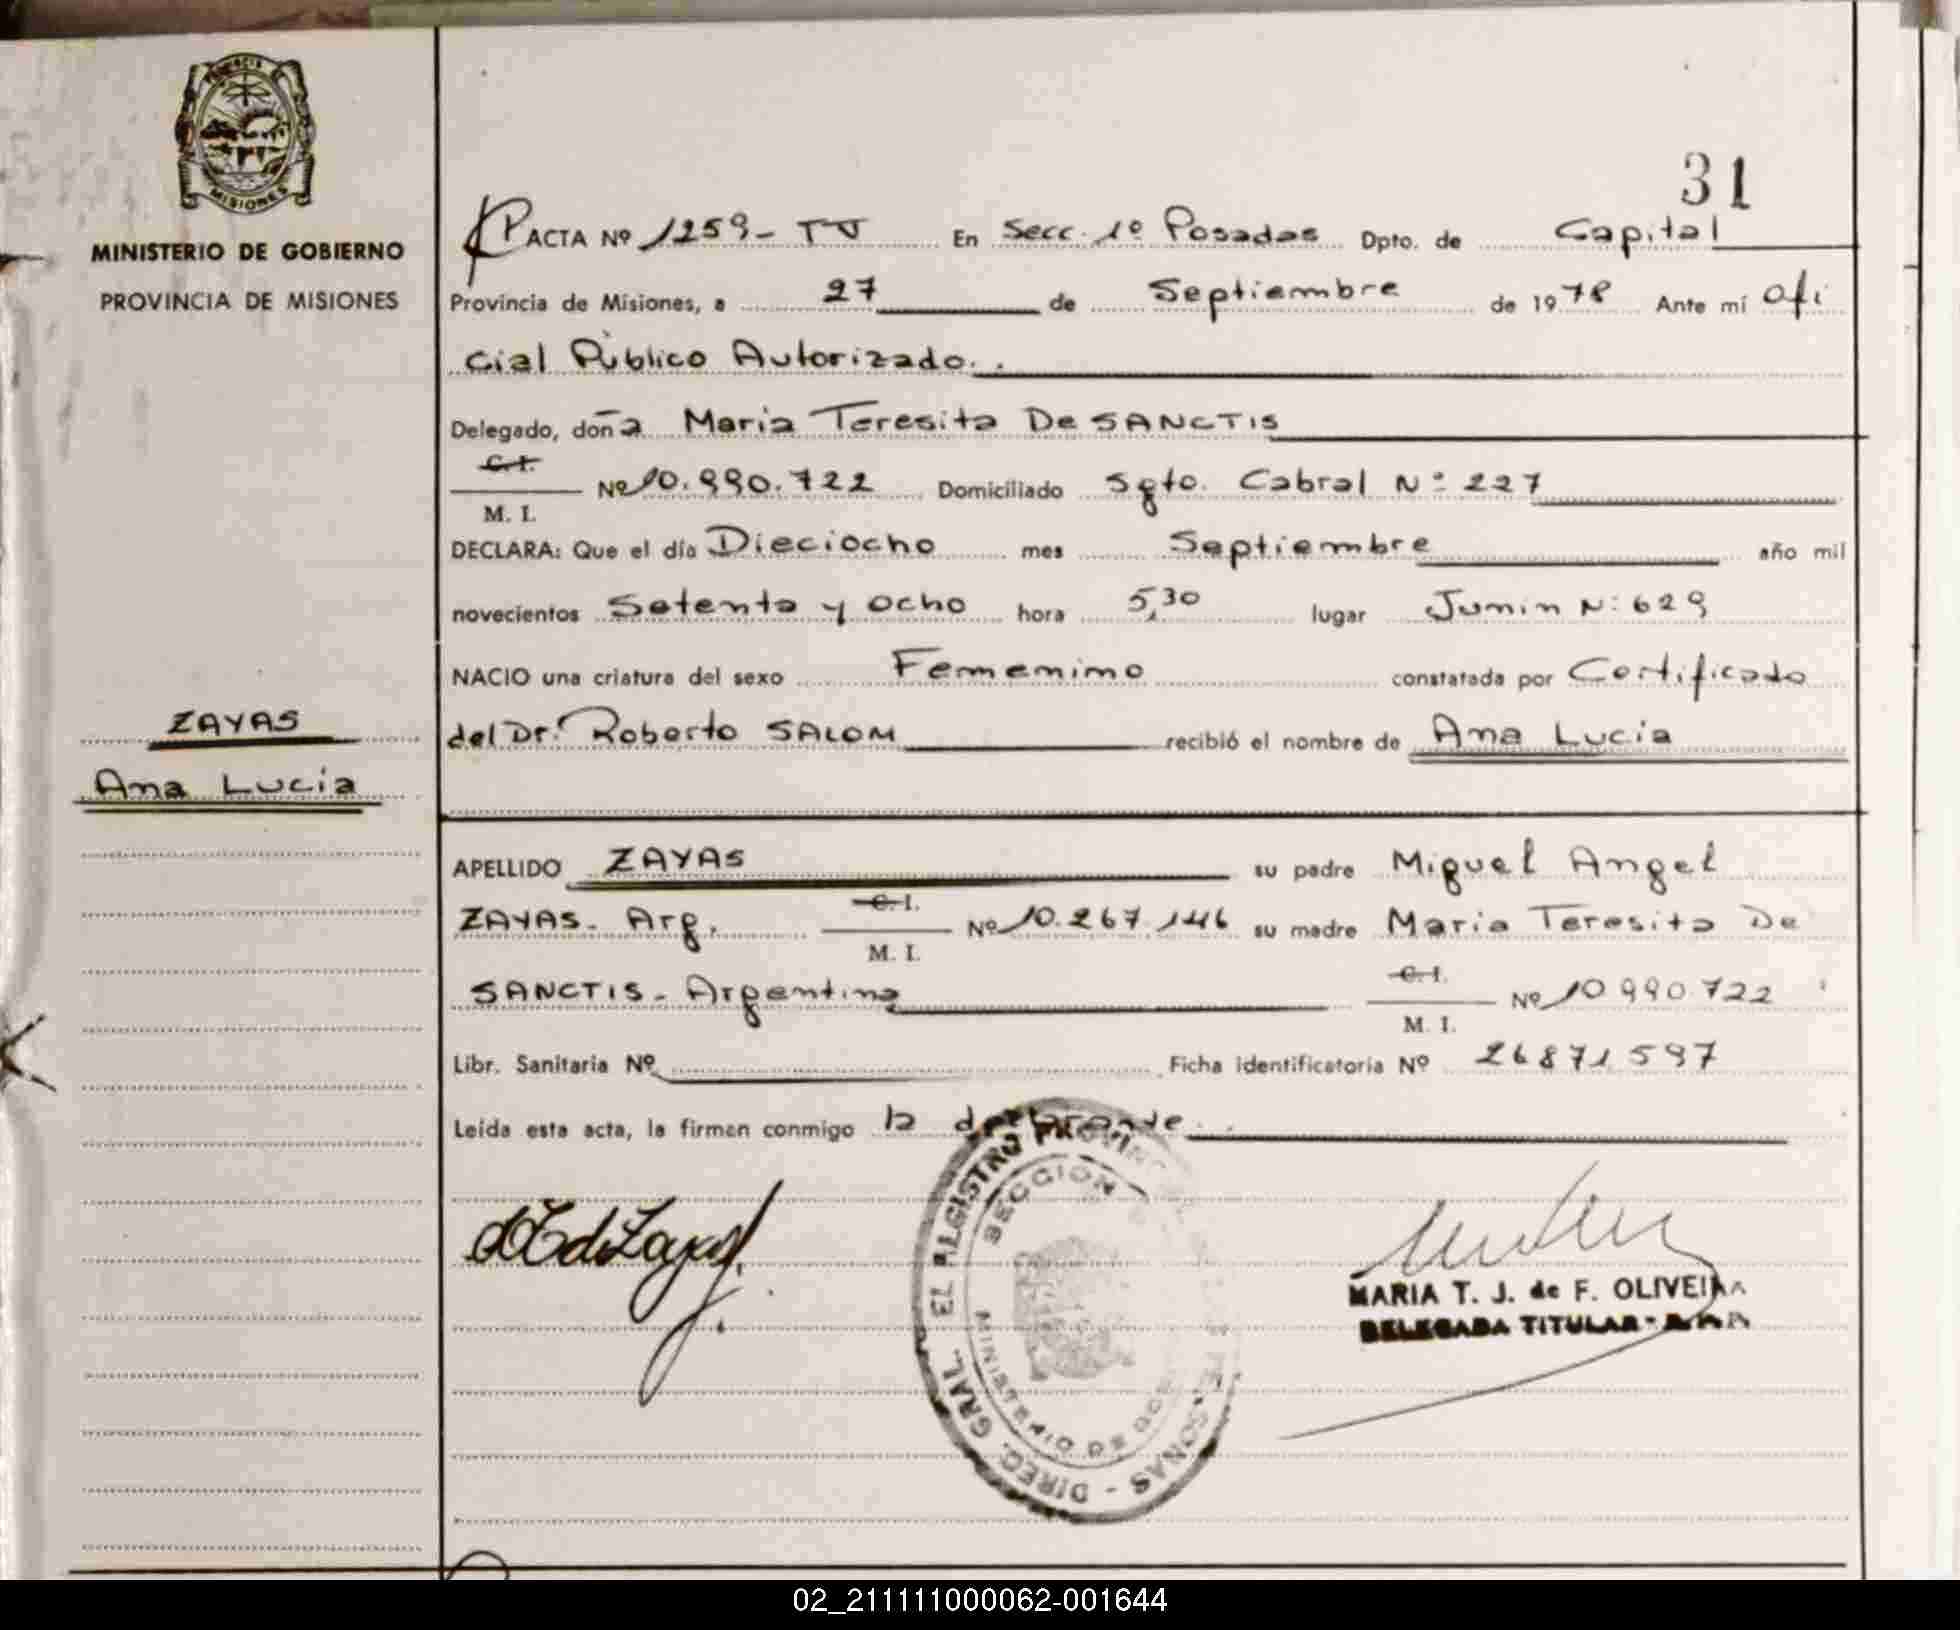 PROVINCIA DE
MISIONES
MINISTERIO DE GOBIERNO
PROVINCIA DE MISIONES
ZAYAS
Ana Lucia
31
ACTA Nº 1259- TJ En Secc. 1º Posadas Dpto. de Capital
Provincia de Misiones, a 27 de Septiembre de 1978 Ante mí Ofi
cial Público Autorizado.
Delegado, doña Maria Teresita De SANCTIS
C. I.
M. I. Nº 10.990.722 Domiciliado Sgto. Cabral Nº 227
DECLARA: Que el día Dieciocho mes Septiembre año mil
novecientos Setenta y ocho hora 5,30 lugar Junin Nº 629
NACIO una criatura del sexo Femenino constatada por Certificado
del Dr. Roberto SALOM recibió el nombre de Ana Lucia
APELLIDO ZAYAS su padre Miguel Angel
ZAYAS- Arg. C. I. M. I. Nº 10.267.146 su madre Maria Teresita De
SANCTIS- Argentina C. I. M. I. Nº 10.990.722
Libr. Sanitaria Nº Ficha Identificatoria Nº 26871597
Leída esta acta, la firman conmigo la declarante.
de Zayas
DIREC. GRAL. EL REGISTRO PROVINC PERSONAS
SECCION
MINISTERIO DE GOB
MARIA T. J. de F. OLIVEIRA
DELEGADA TITULAR
02_211111000062-001644